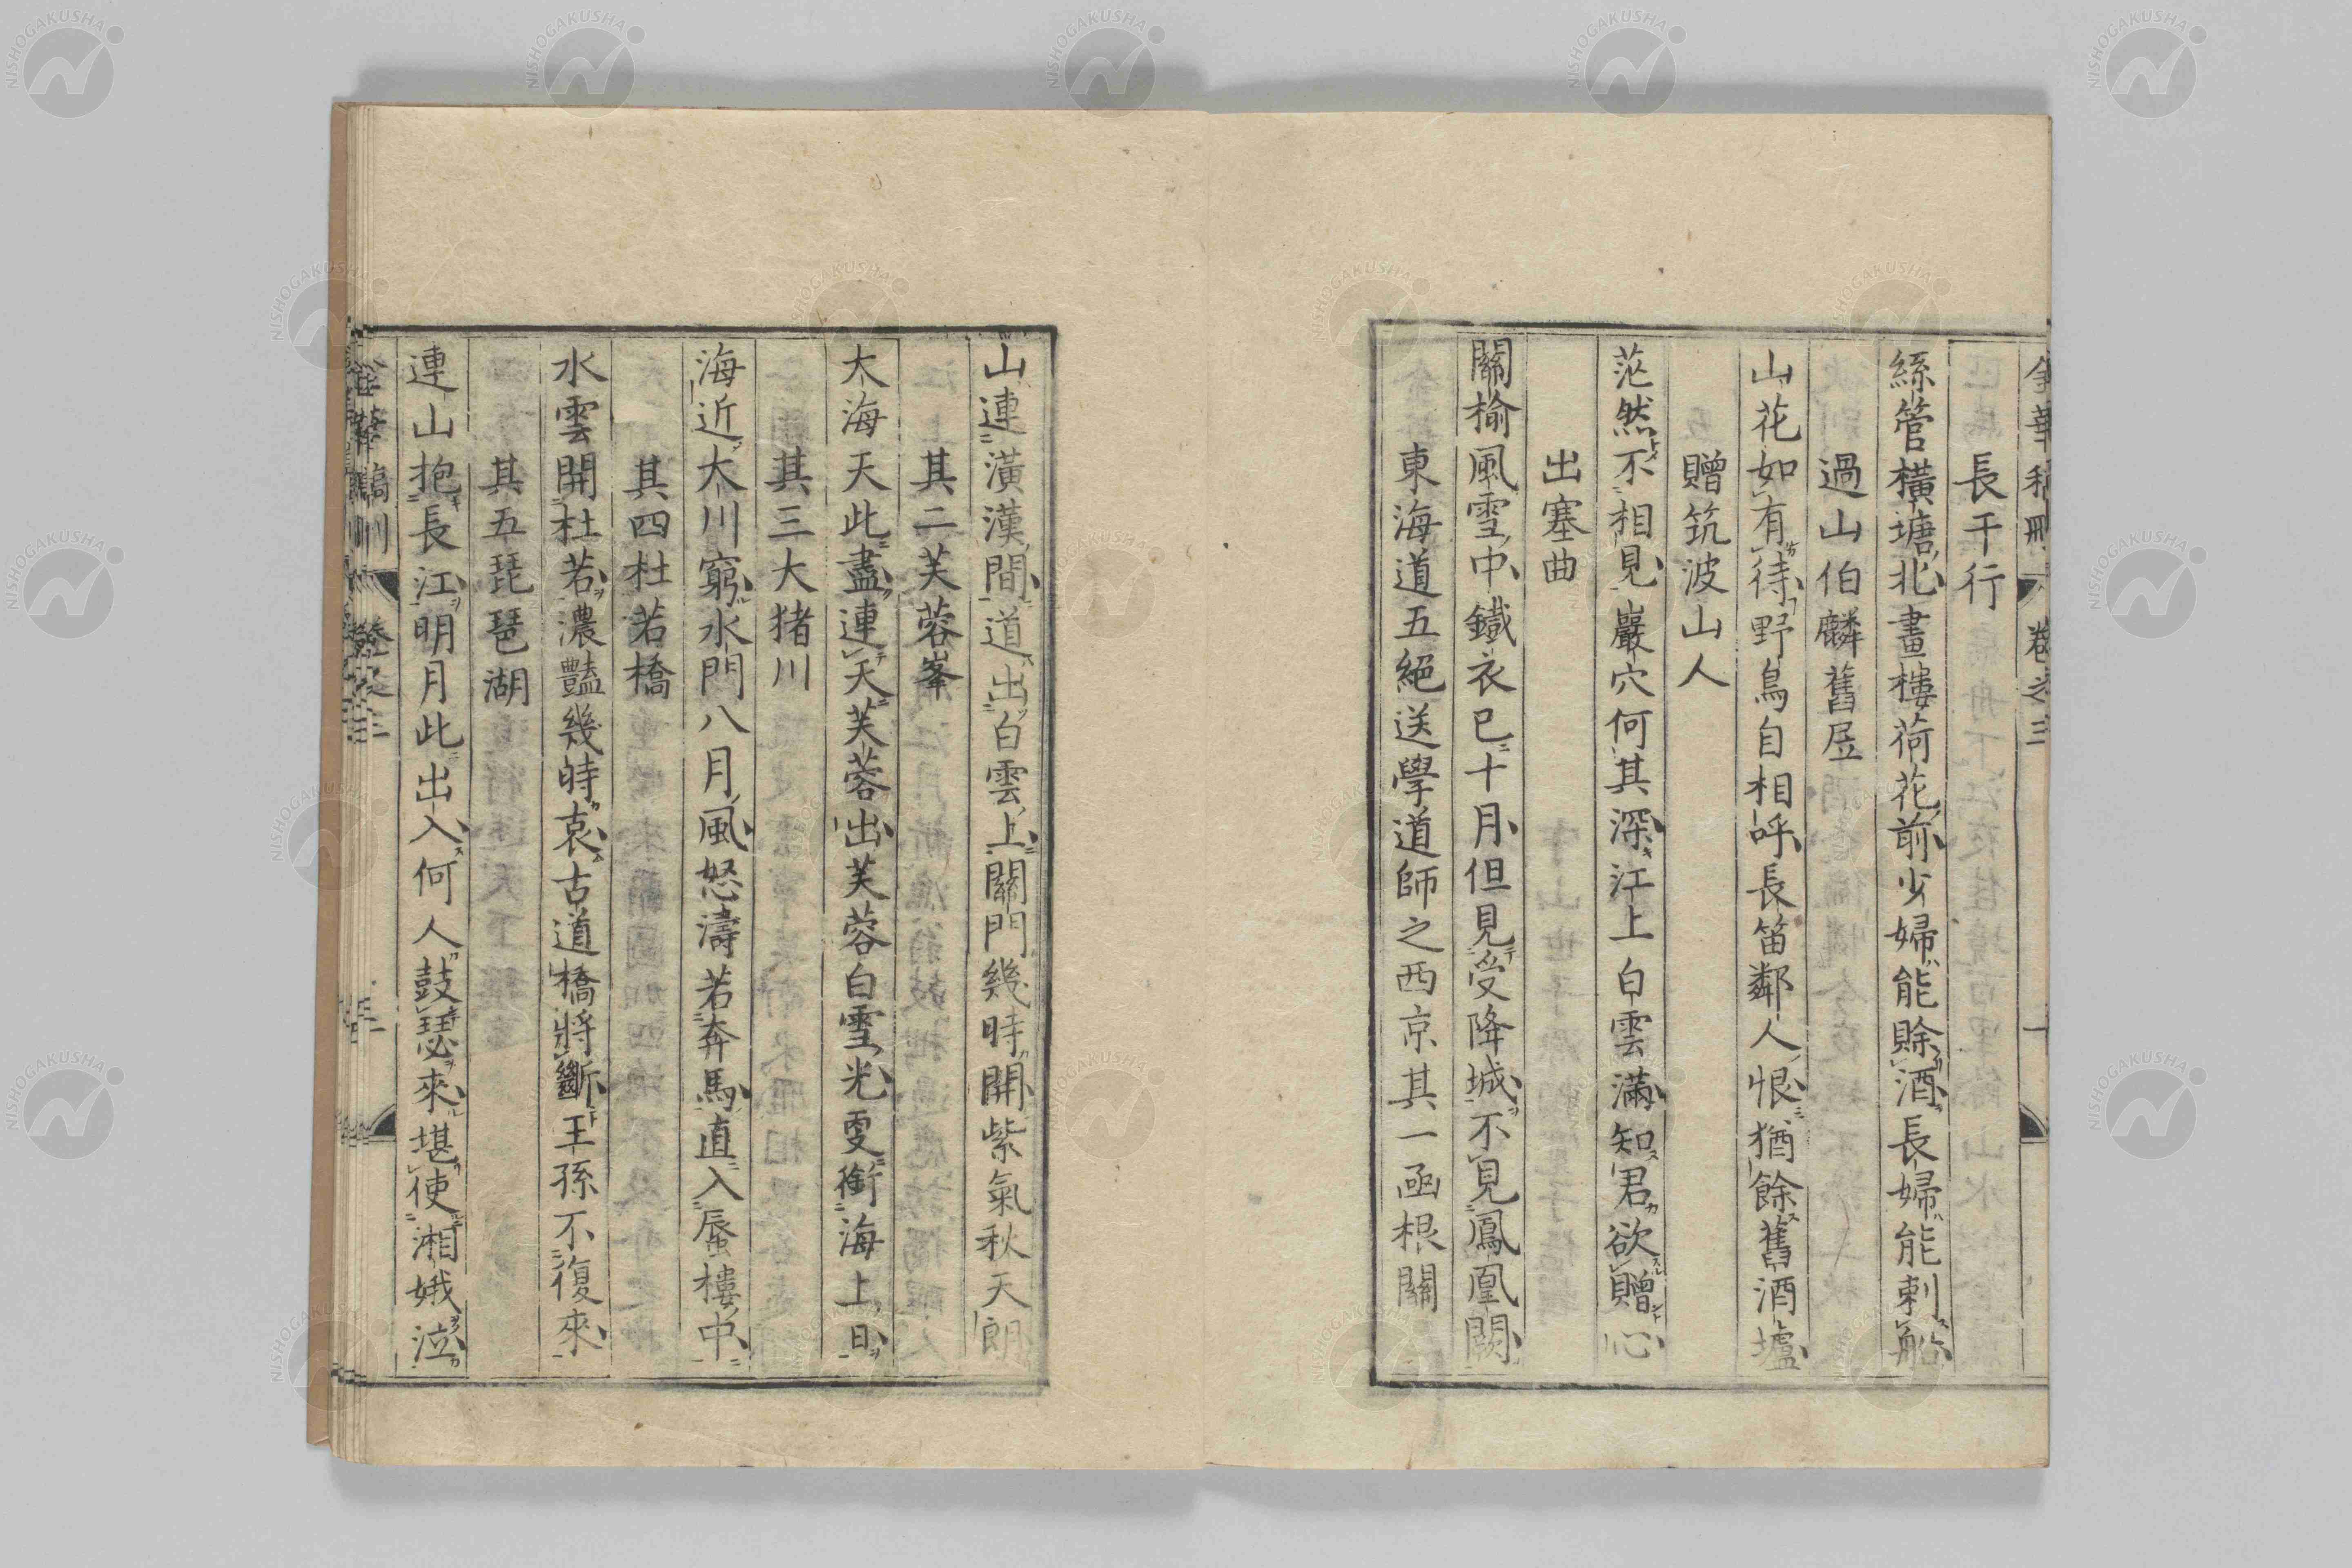 長干行
絲管橫塘北畫樓荷花前少婦能賒酒長婦能刺船
過山伯麟舊居
山花如有待野鳥自相呼長笛鄰人恨猶餘舊酒壚
贈筑波山人
茫然不相見巖穴何其深江上白雲滿知君欲贈心
出塞曲
關榆風雪中鐵衣已十月但見受降城不見鳳凰闕
東海道五絕送學道師之西京其一函根關
山連潢漢間道出白雲上關門幾時開紫氣秋天朗
其二芙蓉峯
大海天此盡連天芙蓉出芙蓉白雪光夏銜海上日
其三大猪川
海近大川窮水門八月風怒濤若奔馬直入蜃樓中
其四杜若橋
水雲開杜若濃豔幾時哀古道橋將斷王孫不復來
其五琵琶湖
連山抱長江明月此出入何人鼓瑟來堪使湘娥泣
NISHOGAKUSHA